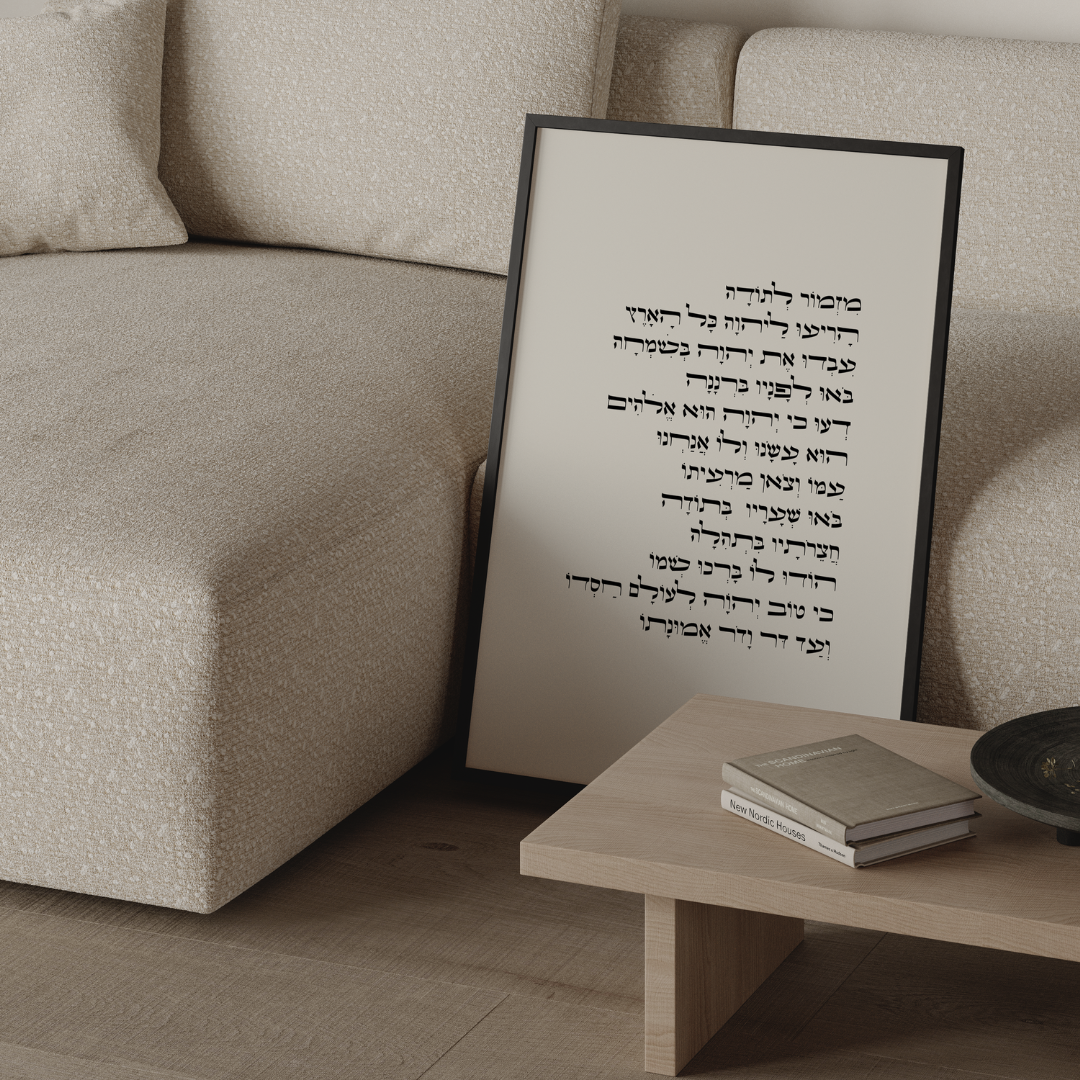 מִזְמוֹר לְתוֹדָה
הָרִיעוּ לַיהוָה כָּל הָאָרֶץ
עִבְדוּ אֶת יְהוָה בְּשִׂמְחָה
בֹּאוּ לְפָנָיו בִּרְנָנָה
דְּעוּ כִּי יְהוָה הוּא אֱלֹהִים
הוּא עָשָׂנוּ וְלוֹ אֲנַחְנוּ
עַמּוֹ וְצֹאן מַרְעִיתוֹ
בֹּאוּ שְׁעָרָיו בְּתוֹדָה
חֲצֵרֹתָיו בִּתְהִלָּה
הוֹדוּ לוֹ בָּרְכוּ שְׁמוֹ
כִּי טוֹב יְהוָה לְעוֹלָם חַסְדּוֹ
וְעַד דֹּר וָדֹר אֱמוּנָתוֹ
THE SCANDINAVIAN
HOME
New Nordic Houses